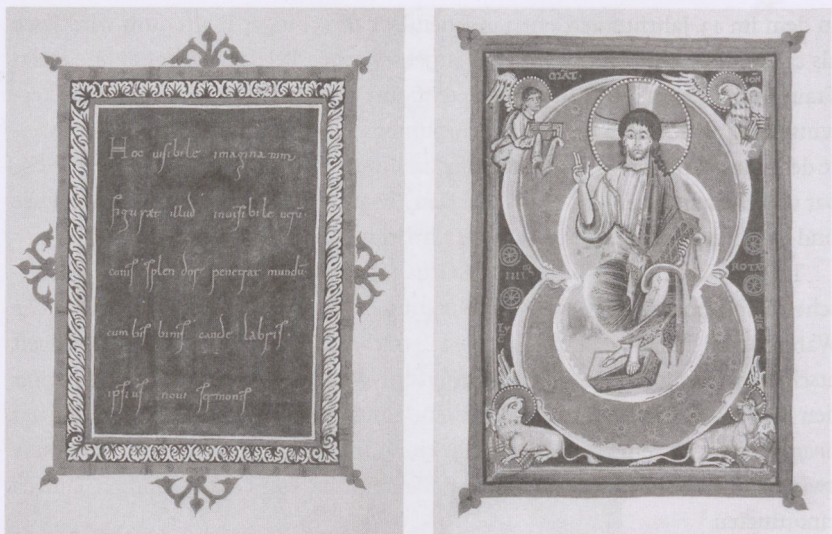 Hoc uisibile imaginatum
figurat illud inuisibile uerū·
cuius splendor penetrat mundū
cum bis binis cande labris·
ipsius noui sermonis
MAT.
IOH
IIII
ROTE